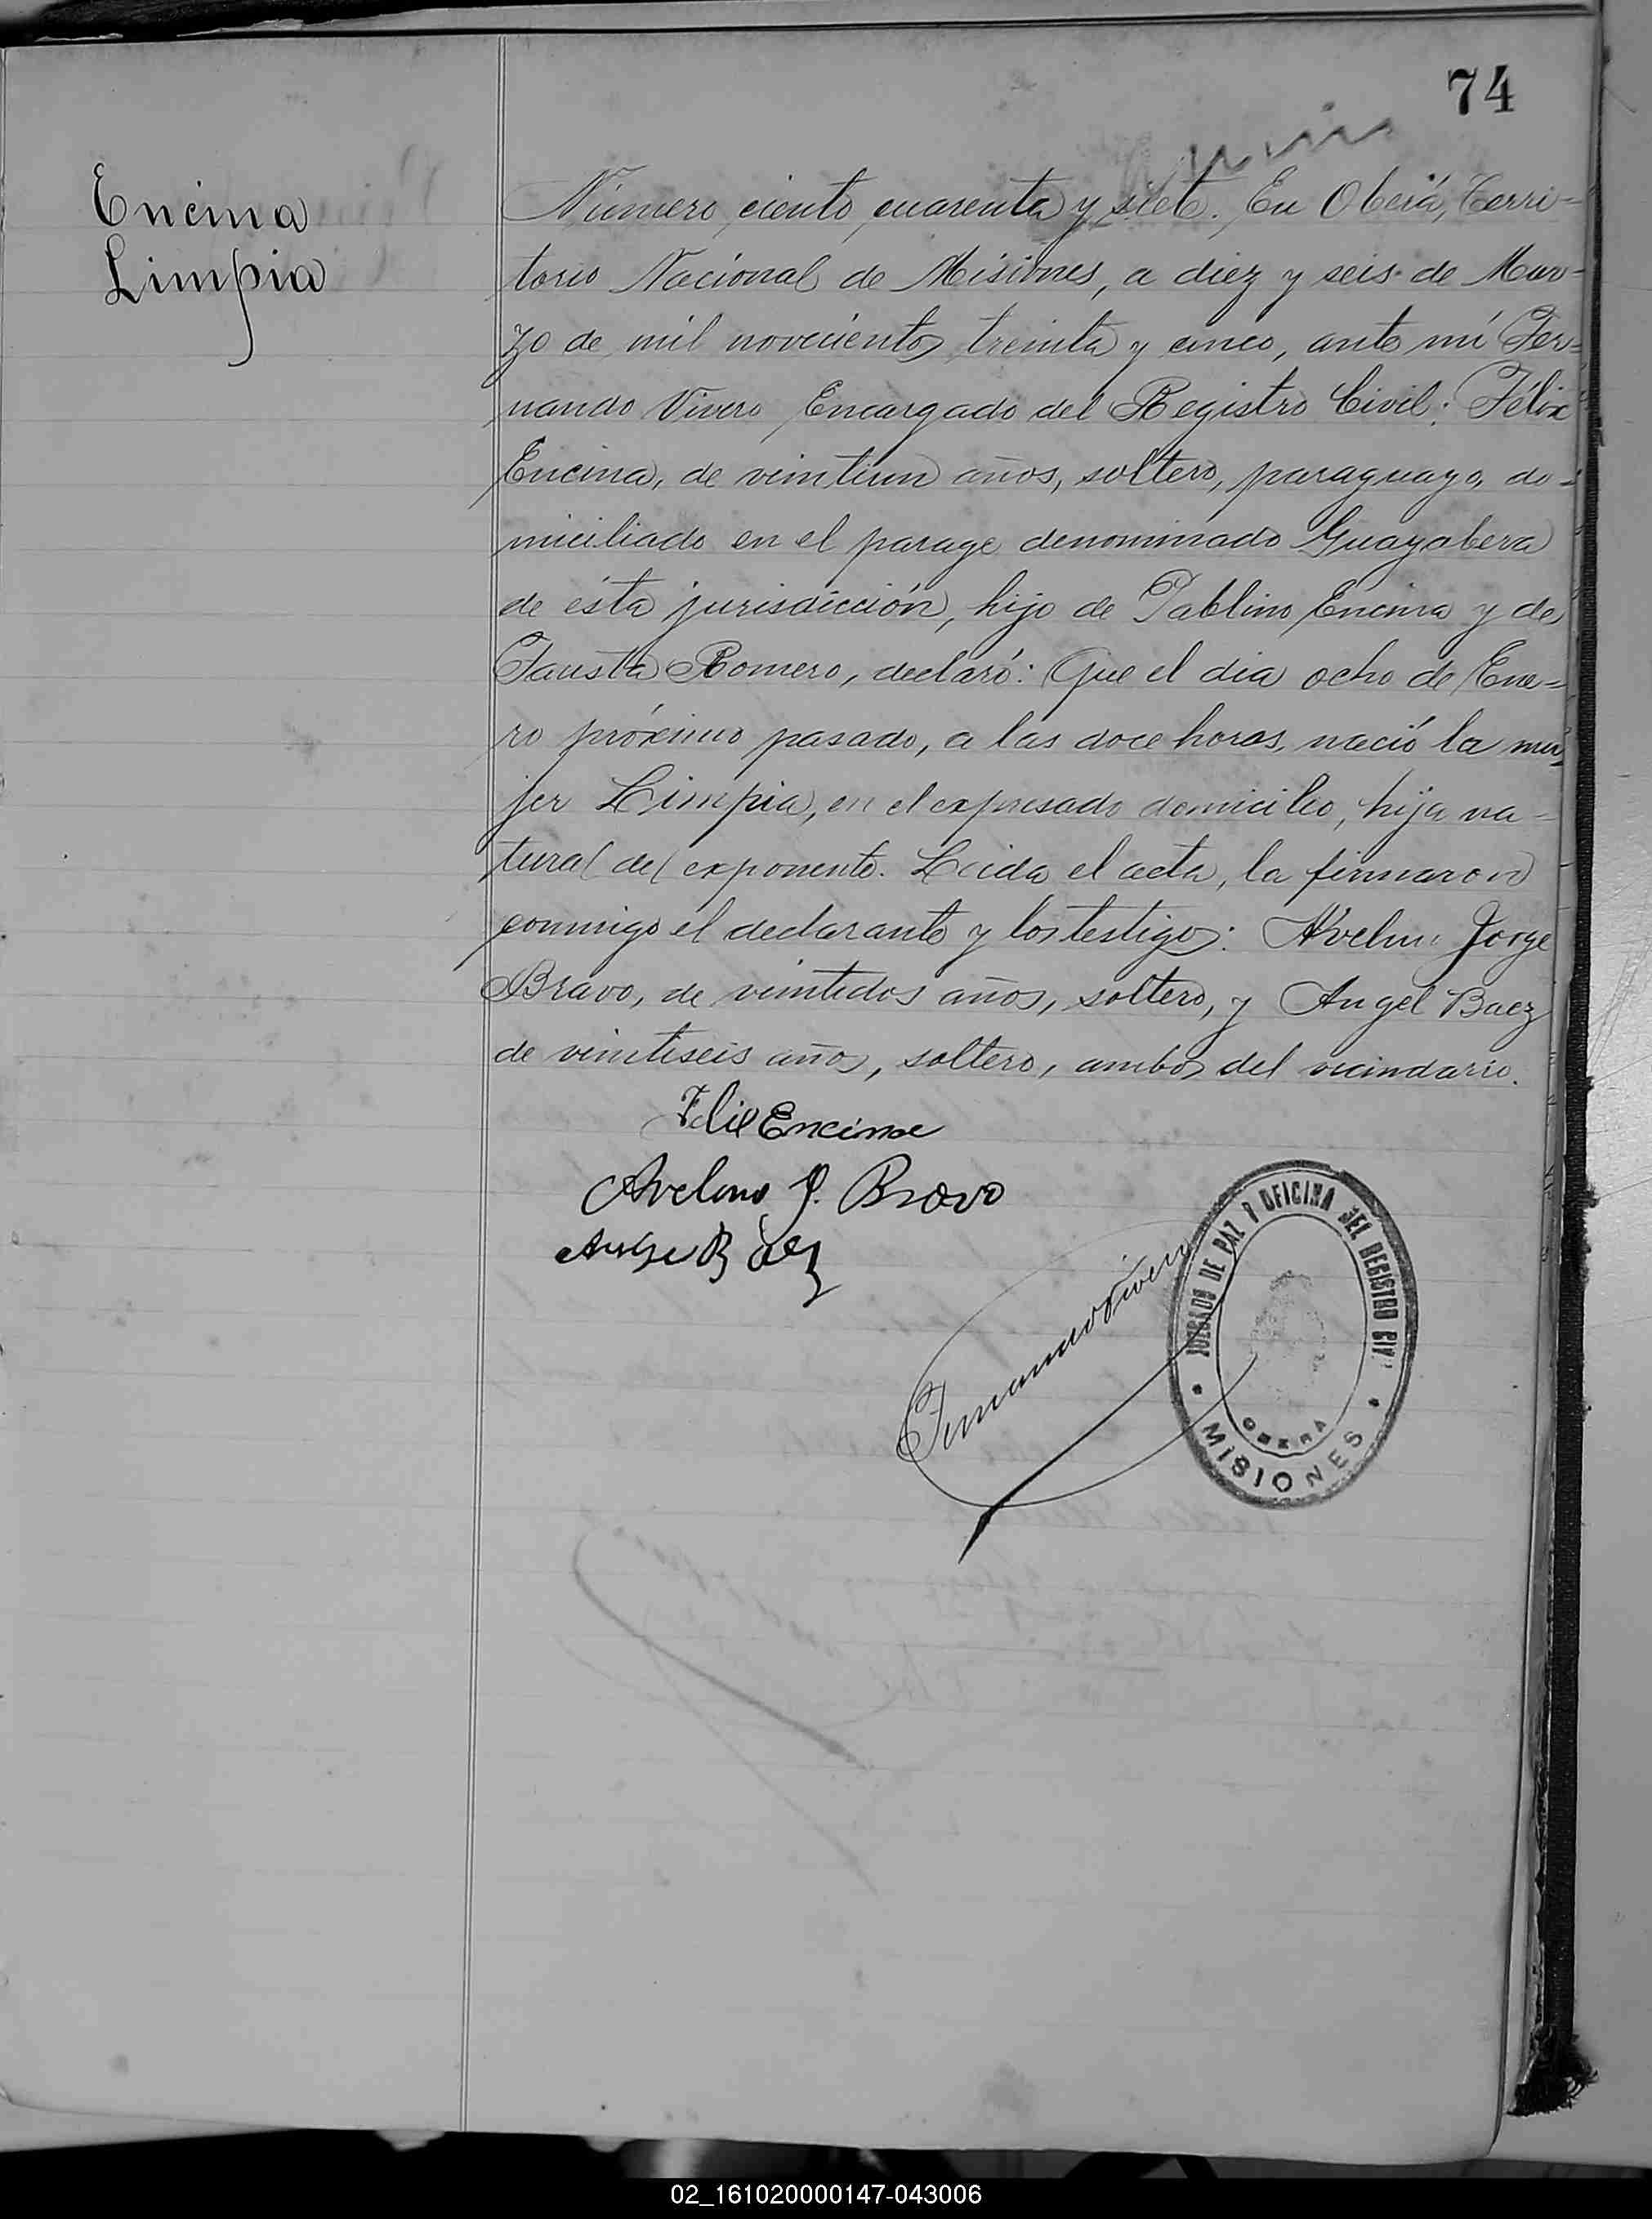 74
Encina
Limpia
Número ciento cuarenta y siete. En Oberá, Terri=
torio Nacional de Misiones, a diez y seis de Mar=
zo de mil novecientos treinta y cinco, ante mí Fer=
nando Vivero Encargado del Registro Civil: Félix
Encina, de veintiun años, soltero, paraguayo, do=
miciliado en el parage denominado Guayabera
de ésta jurisdicción, hijo de Pablino Encina y de
Fausta Romero, declaró: Que el dia ocho de Ene=
ro próximo pasado, a las doce horas, nació la mu
jer Limpia, en el expresado domicilio, hija na-
tural del exponente. Leida el acta, la firmaron
conmigo el declarante y los testigos: Avelino Jorge
Bravo, de veintidos años, soltero, y Angel Baez
de veintiseis años, soltero, ambos del vecindario.
Felix Encina
Avelino J. Bravo
Fernando Vivero
JUZGADO DE PAZ Y OFICINA DEL REGISTRO CIVIL
OBERA
MISIONES
02_161020000147-043006